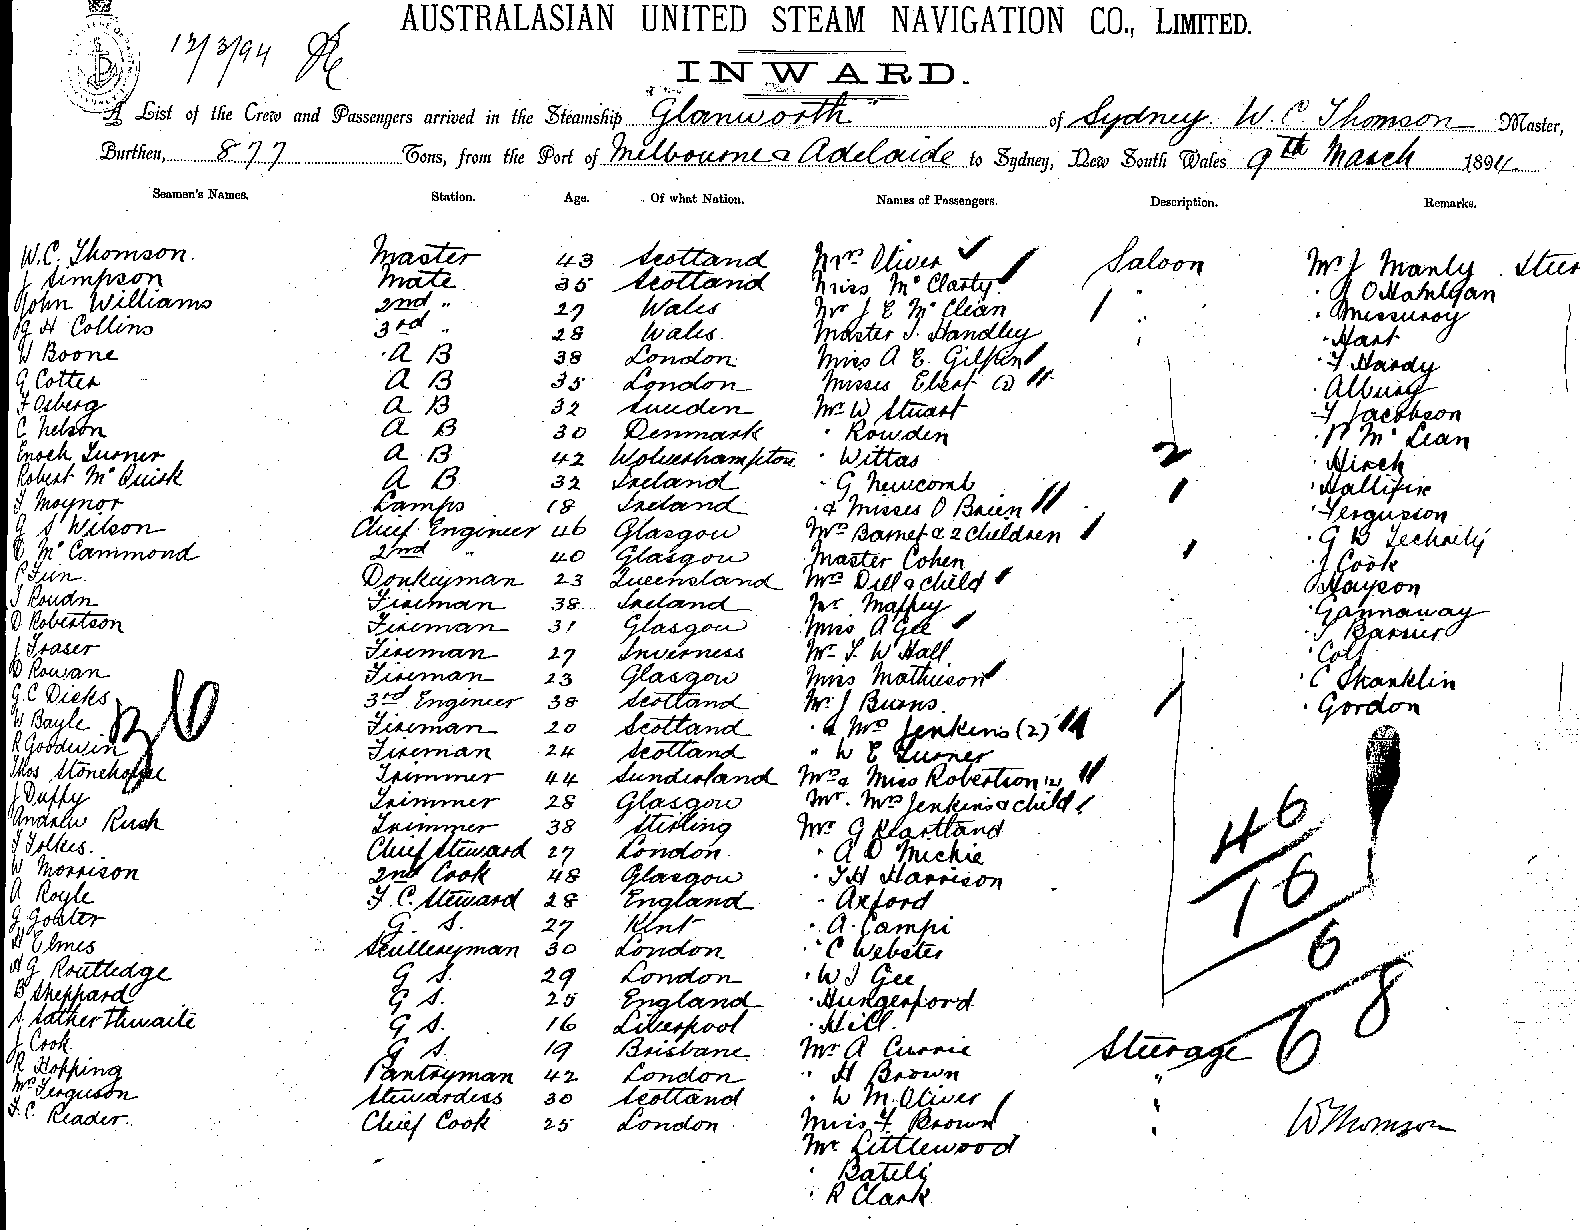 AUSTRALASIAN UNITED STEAM NAVIGATION CO., LIMITED.
12/3/94
INWARD.
A List of the Crew and Passengers arrived in the Steamship Glanworth of Sydney. W. C. Thomson Master,
Burthen, 877 Tons, from the Port of Melbourne & Adelaide to Sydney, New South Wales 9th March 1894.
Seamen's Names. Station. Age. Of what Nation. Names of Passengers. Description. Remarks.
W. C. Thomson. Master 43 Scotland Mrs Oliver Saloon Mr J Manly
J Simpson Mate 35 Scotland Miss McClarty
John Williams 2nd " 27 Wales Mr J E McClean
G H Collins 3rd " 28 Wales Master J. Handley Hart
W Boone A B 38 London Miss A E. F Hardy
G Cotter A B 35 London Misses Ebert (2) Albury
F Osberg A B 32 Sweden Mr W Stuart F Jacobson
C Nelson A B 30 Denmark " Rowden McLean
Enoch Turner A B 42 Wolverhampton " Wittas Hirch
Robert McQuirk A B 32 Ireland " G Newcomb
T Moynor Lamps 18 Ireland " & Misses O Brien Fergusson
G S Wilson Chief Engineer 46 Glasgow Mrs Barnet & 2 Children
McCammond 2nd " 40 Glasgow Master Cohen J Cook
Donkeyman 23 Queensland Mrs Dill & child Hayson
Fireman 38 Ireland Mr Maffey Gannaway
D Robertson Fireman 31 Glasgow Miss A Gee
J Fraser Fireman 27 Inverness Mr T. W Hall
D Rowan Fireman 23 Glasgow Miss Mathieson C Shanklin
G. C Dicks 3rd Engineer 38 Scotland Mr J Burns. Gordon
W Bayle Fireman 20 Scotland " & Mrs Jenkins (2)
R Goodwin Fireman 24 Scotland " W E Turner
Thos Stonehouse Trimmer 44 Sunderland Mrs & Miss Robertson (2)
J Duffy Trimmer 28 Glasgow Mr. Mrs Jenkins & child
Andrew Rush Trimmer 38 Stirling Mr G Heartland
T Folkes. Chief Steward 27 London " A D Michie
W Morrison 2nd Cook 48 Glasgow " T H Harrison
A Royle F. C. Steward 28 England " Axford
G. S. 27 Kent " A. Campi
H Elmes Sculleryman 30 London " C Webster
H G Routledge G S. 29 London " W J Gee
B Sheppard G S. 25 England " Hungerford
S Satherthwaite G S. 16 Liverpool " Hill.
J Cook G S. 19 Brisbane Mr A Currie Steerage
R Hopping Pantryman 42 London " H Brown "
Mrs Ferguson Stewardess 30 Scotland " W M. Oliver "
F. C Reader. Chief Cook 25 London Miss F Brown "
Mr Littlewood
" R Clark
36
46
16
6
68
WThomson